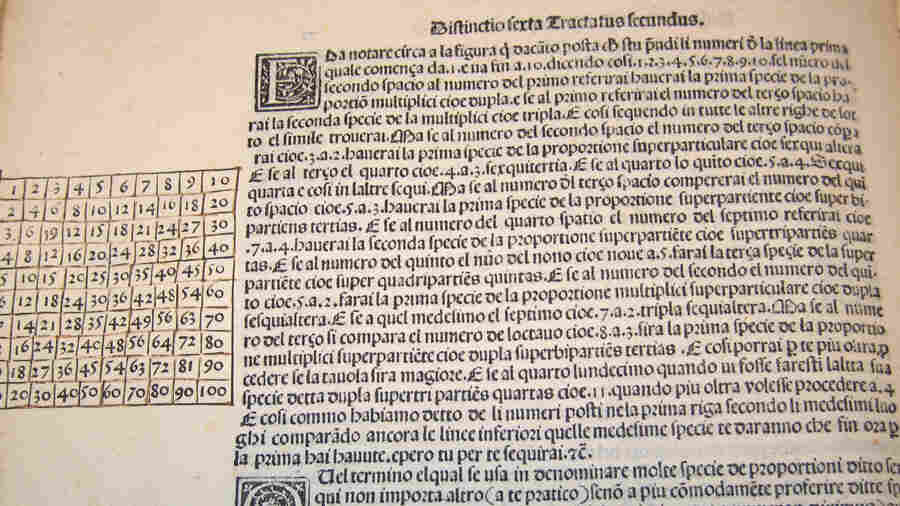 Distinctio sexta Tractatus secundus.
Da notare circa a la figura q̃ dacãto posta ch̃ stu p̃ndi li numeri d̃ la linea prima
quale comença da .1. e va fin a .10. dicendo cosi .1.2.3.4.5.6.7.8.9.10. sel nũero del
secondo spacio al numero del primo referirai haverai la prima specie de la pro-
portiõ multiplici cioe dupla. e se al primo referirai el numero del terço spacio ha
rai la seconda specie de la multiplici cioe tripla. E cosi sequendo in tutte le altre righe de sot
to el simile trouerai. Ma se al numero del secondo spacio el numero del terço spacio cõp̃a
rai cioe .3.a.2. haverai la prima specie de la proportione superparticulare cioe sexqui altera
E se al terço el quarto cioe .4.a.3. sexquitertia. E se al quarto lo quito cioe .5.a.4. Sexqui
quarta e cosi in laltre sequi. Ma se al numero d̃l terço spacio compererai el numero del qui
to spacio cioe .5.a.3. haverai la prima specie de la proportione superpartiente cioe super bi-
partiens tertias. E se al numero del quarto spatio el numero del septimo referirai cioe
.7.a.4. haverai la seconda specie de la proportione superpartiẽte cioe supertripartiẽs quar
tas. E se al numero del quinto el nũo del nono cioe noue a .5. farai la terça specie de la super
partiẽte cioe super quadripartiẽs quintas. E se al numero del secondo el numero del qui
to cioe .5.a.2. farai la prima specie de la proportione multiplici superparticulare cioe dupla
sesquialtera. E se a quel medesimo el septimo cioe .7.a.2. tripla sequialtera. Ma se al nume
ro del terço si compara el numero de loctauo cioe .8.a.3. sira la prima specie de la proportio
ne multiplici superpartiẽte cioe dupla superbipartiẽs tertias. E cosi porrai p̲ te piu oltra p̲
cedere se la tauola sira magiore. E se al quarto lundecimo quando vi fosse faresti laltra sua
specie detta dupla supertri partiẽs quartas cioe .11. quando piu oltra volesse procedere a .4
E cosi commo habiamo detto de li numeri posti ne la prima riga secondo li medesimi luo
ghi comparãdo ancora le linee inferiori quelle medesime specie te daranno che fin ora p̲
la prima hai hauute. epero tu per te sequirai. ⁊c̃.
Uel termino elqual se usa in denominare molte specie de proportioni ditto
qui non importa altro (a te pratico) senõ a piu cõmodamẽte proferire ditte
1 2 3 4 5 6 7 8 9 10
2 4 6 8 10 12 14 16 18 20
3 6 9 12 15 18 21 24 27 30
4 8 12 16 20 24 28 32 36 40
5 10 15 20 25 30 35 40 45 50
6 12 18 24 30 36 42 48 54 60
14 21 28 35 42 49 56 63 70
16 24 32 40 48 56 64 72 80
18 27 36 45 54 63 72 81 90
20 30 40 50 60 70 80 90 100